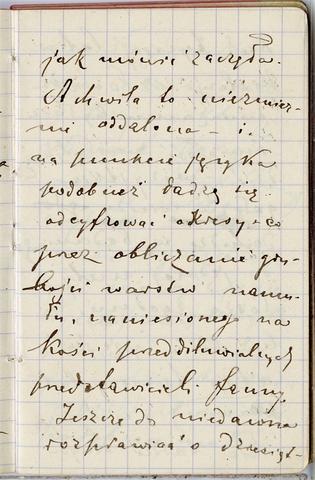 jak mówić zaczęła.
A chwila to niezmier-
nie oddalona – i
na punkcie języka
podobnież dadzą się
odcyfrować okresy – co
przez obliczanie gru-
bości warstw namu-
łu, naniesionego na
kości przeddiluwialnych
przedstawicieli fauny.
Jeszcze do niedawna
rozprawiać o dziesięt-